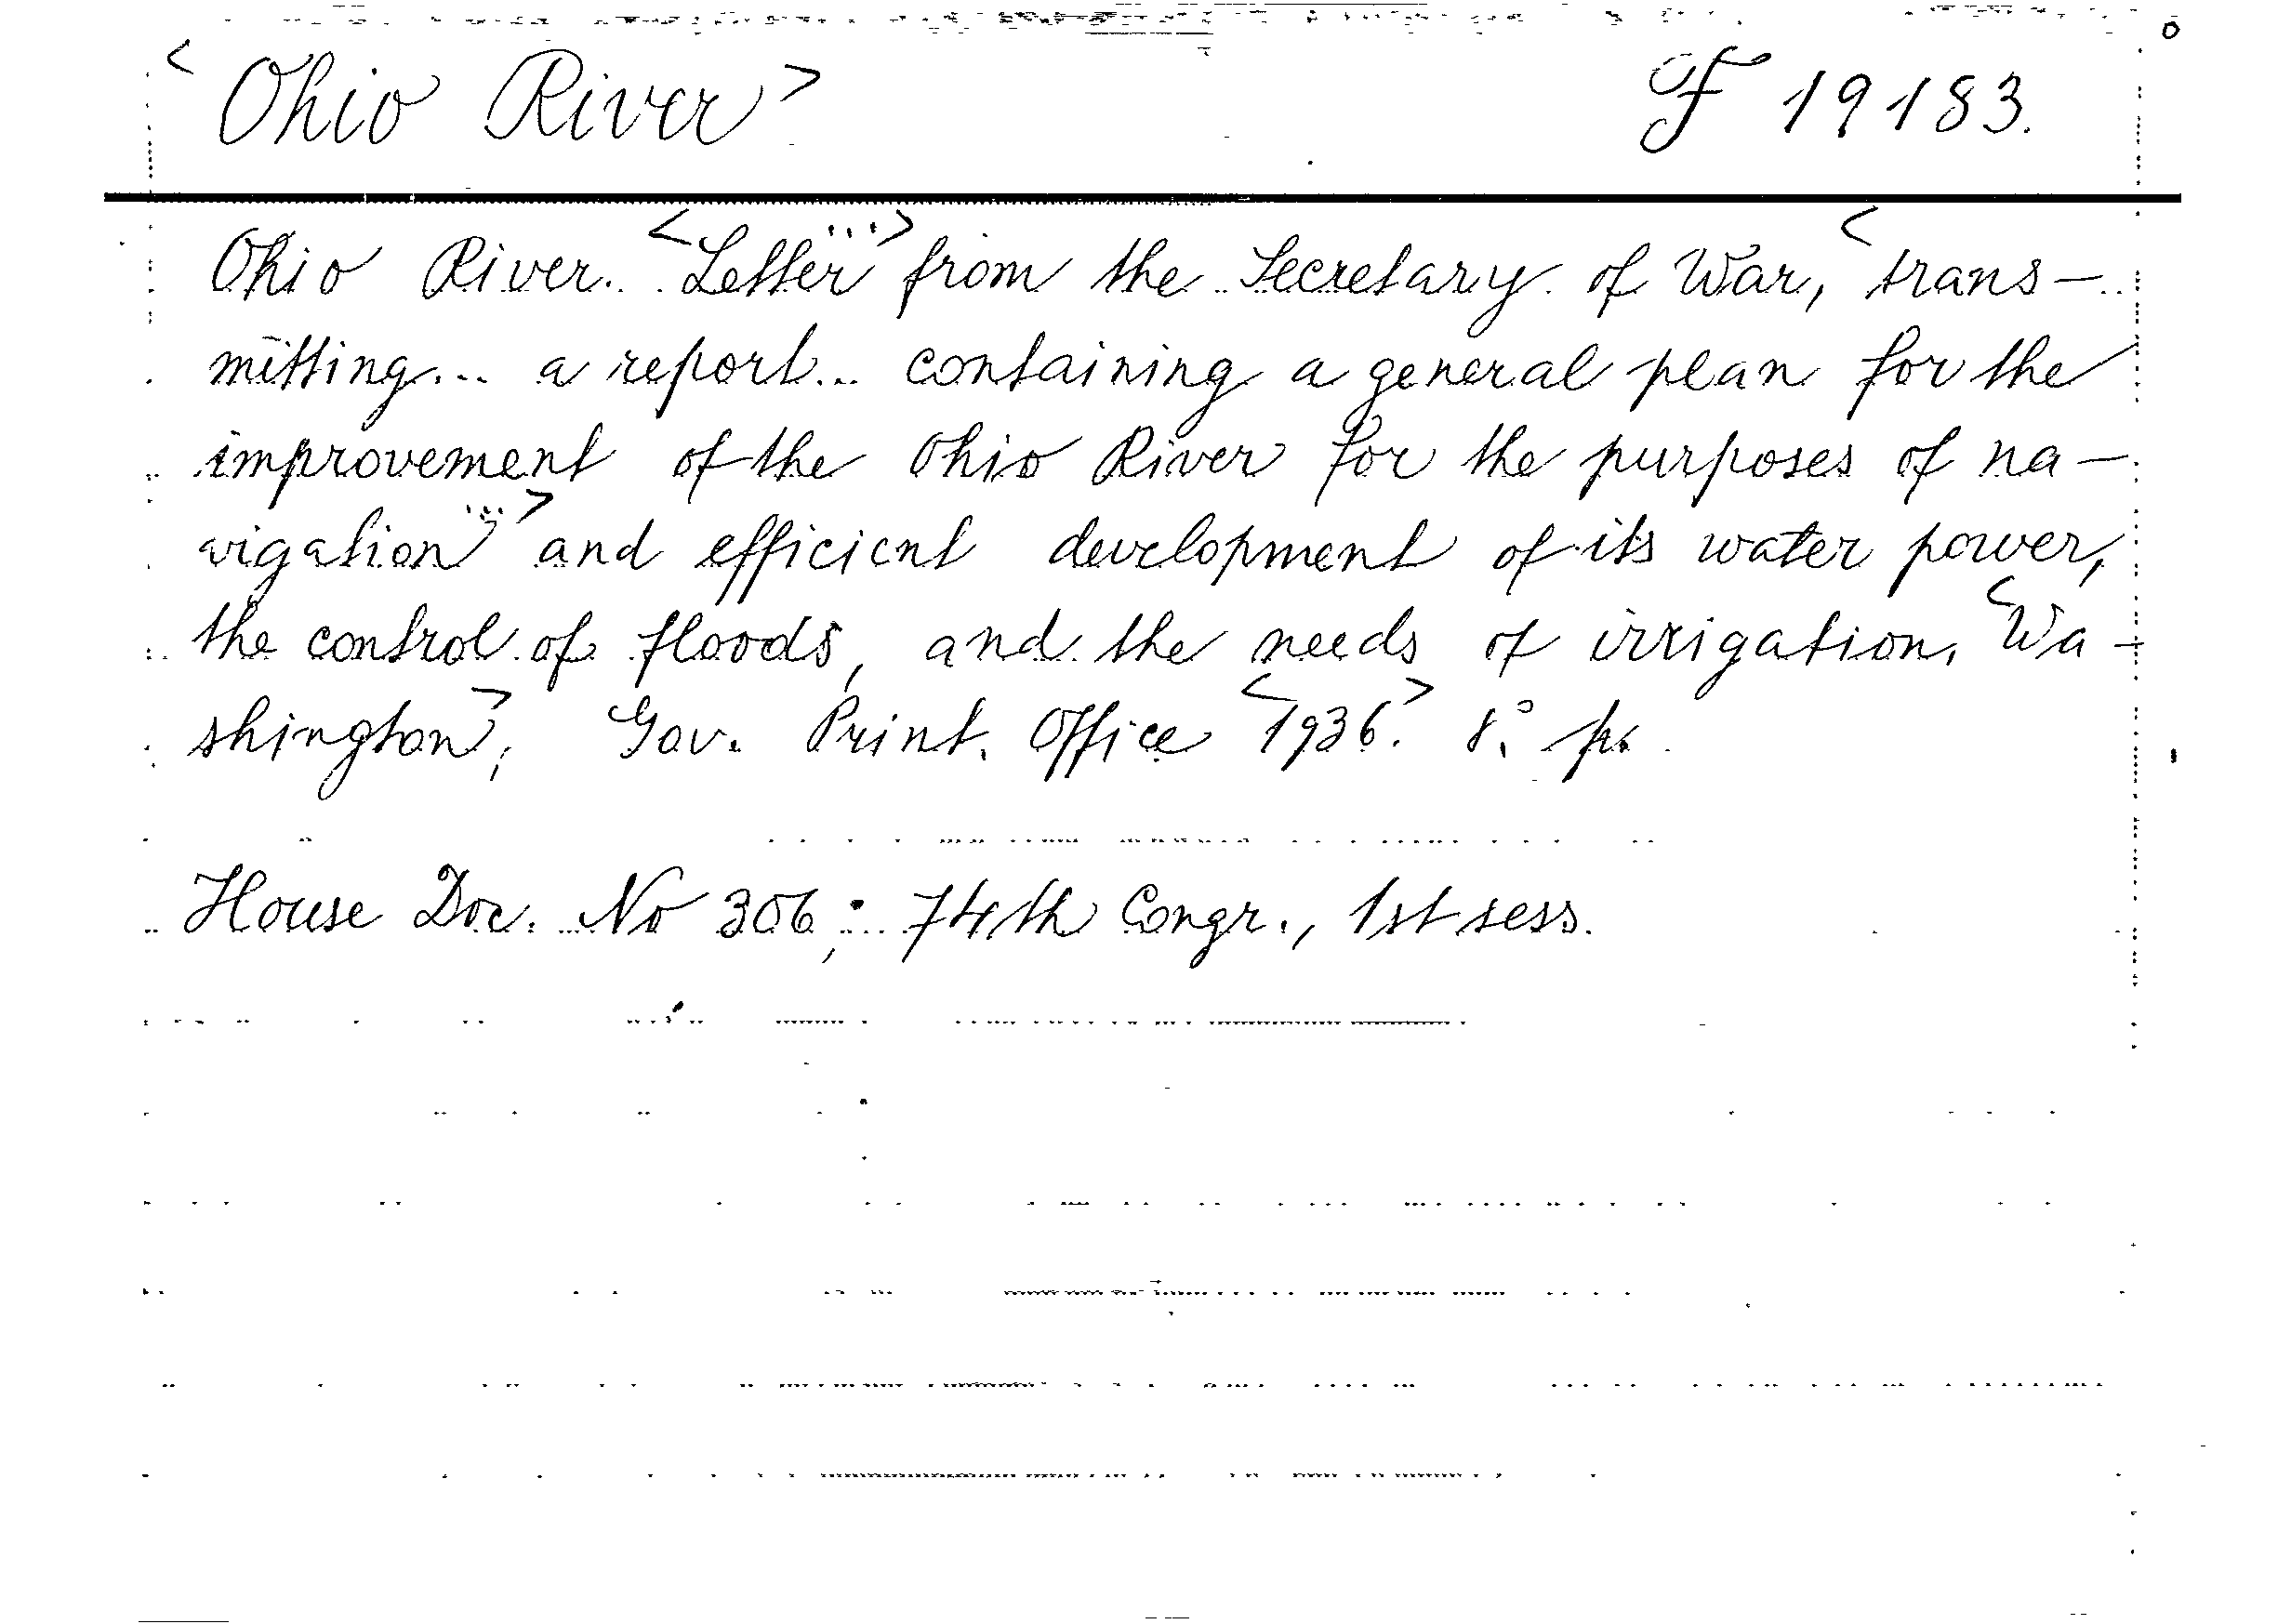 <Ohio River> F 19183.
Ohio River. <Letter...> from the Secretary of War, <trans-
mitting... a report... containing a general plan for the
improvement of the Ohio River for the purposes of na-
vigation...> and efficient development of its water power,
the control of floods, and the needs of irrigation. <Wa-
shington>, Gov. Print. Office <1936.> 8.° p.
House Doc. No 306, : 74th Congr., 1st sess.